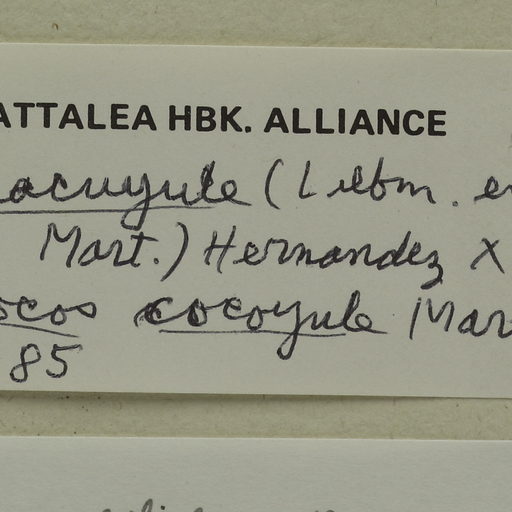 ATTALEA HBK. ALLIANCE
acuyule (Liebm. e
Mart.) Hernandez X
ocos cocoyule Mar
85